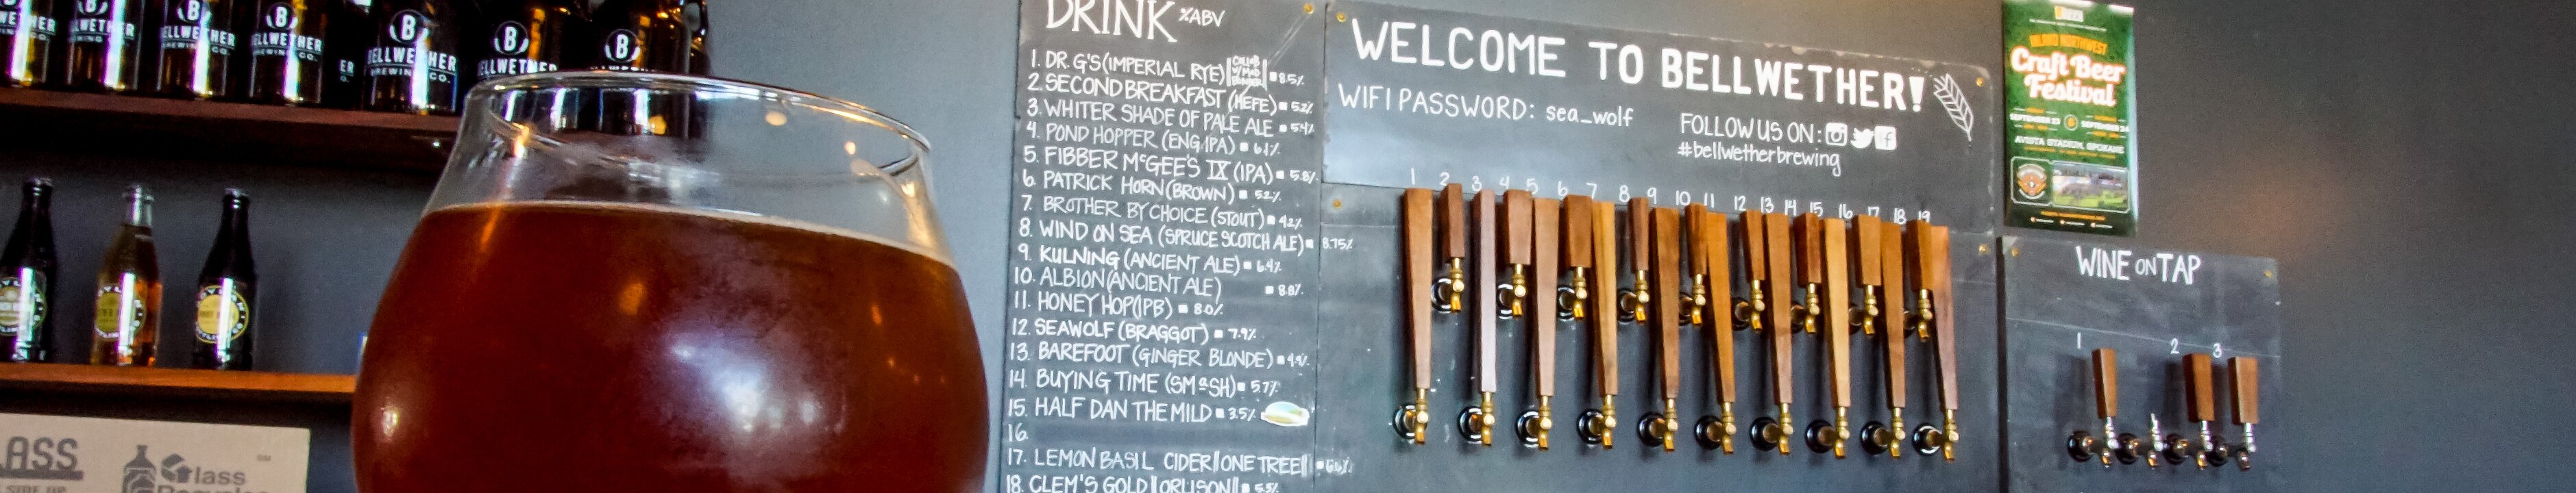 BELLWETHER
BREWING CO.
B
BELLWETHER
BREWING CO.
B
BELLWETHER
DRINK %ABV
1. DR. G'S (IMPERIAL RYE) 8.5%
2. SECOND BREAKFAST (HEFE) 5.2%
3. WHITER SHADE OF PALE ALE 5.4%
4. POND HOPPER (ENG IPA) 6.1%
5. FIBBER McGEE'S IX (IPA) 5.8%
6. PATRICK HORN (BROWN) 5.2%
7. BROTHER BY CHOICE (STOUT) 4.2%
8. WIND ON SEA (SPRUCE SCOTCH ALE) 8.75%
9. KULNING (ANCIENT ALE) 6.4%
10. ALBION (ANCIENT ALE) 8.8%
11. HONEY HOP (IPB) 8.0%
12. SEAWOLF (BRAGGOT) 7.9%
13. BAREFOOT (GINGER BLONDE) 4.9%
14. BUYING TIME (SMaSH) 5.7%
15. HALF DAN THE MILD 3.5%
16.
17. LEMON BASIL CIDER ||ONE TREE||
18. CLEM'S GOLD ||ORLISON|| 5.5%
WELCOME TO BELLWETHER!
WIFI PASSWORD: sea_wolf
FOLLOW US ON:
#bellwetherbrewing
1 2 3 4 5 6 7 8 9 10 11 12 13 14 15 16 17 18 19
INLAND NORTHWEST
Craft Beer
Festival
SEPTEMBER 23
SEPTEMBER 24
AVISTA STADIUM, SPOKANE
WINE ON TAP
1 2 3
LASS
Glass